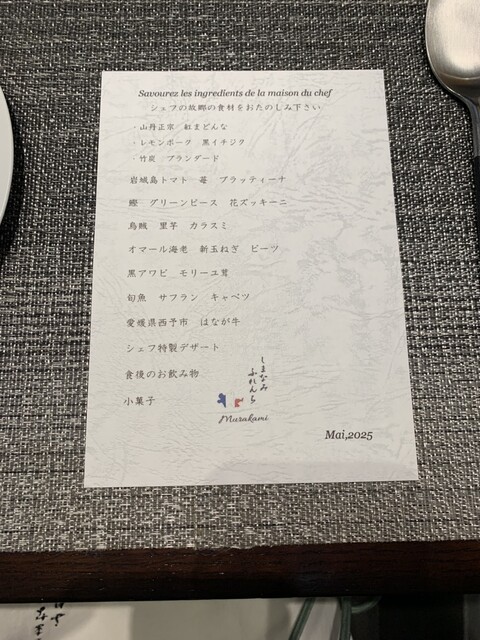 Savourez les ingredients de la maison du chef
シェフの故郷の食材をおたのしみ下さい
・山丹正宗 紅まどんな
・レモンポーク 黒イチジク
・竹炭 ブランダード
岩城島トマト 苺 ブラッティーナ
鰹 グリーンピース 花ズッキーニ
烏賊 里芋 カラスミ
オマール海老 新玉ねぎ ビーツ
黒アワビ モリーユ茸
旬魚 サフラン キャベツ
愛媛県西予市 はなが牛
シェフ特製デザート
食後のお飲み物
小菓子
しまなみ
ふれんち
Murakami
Mai,2025